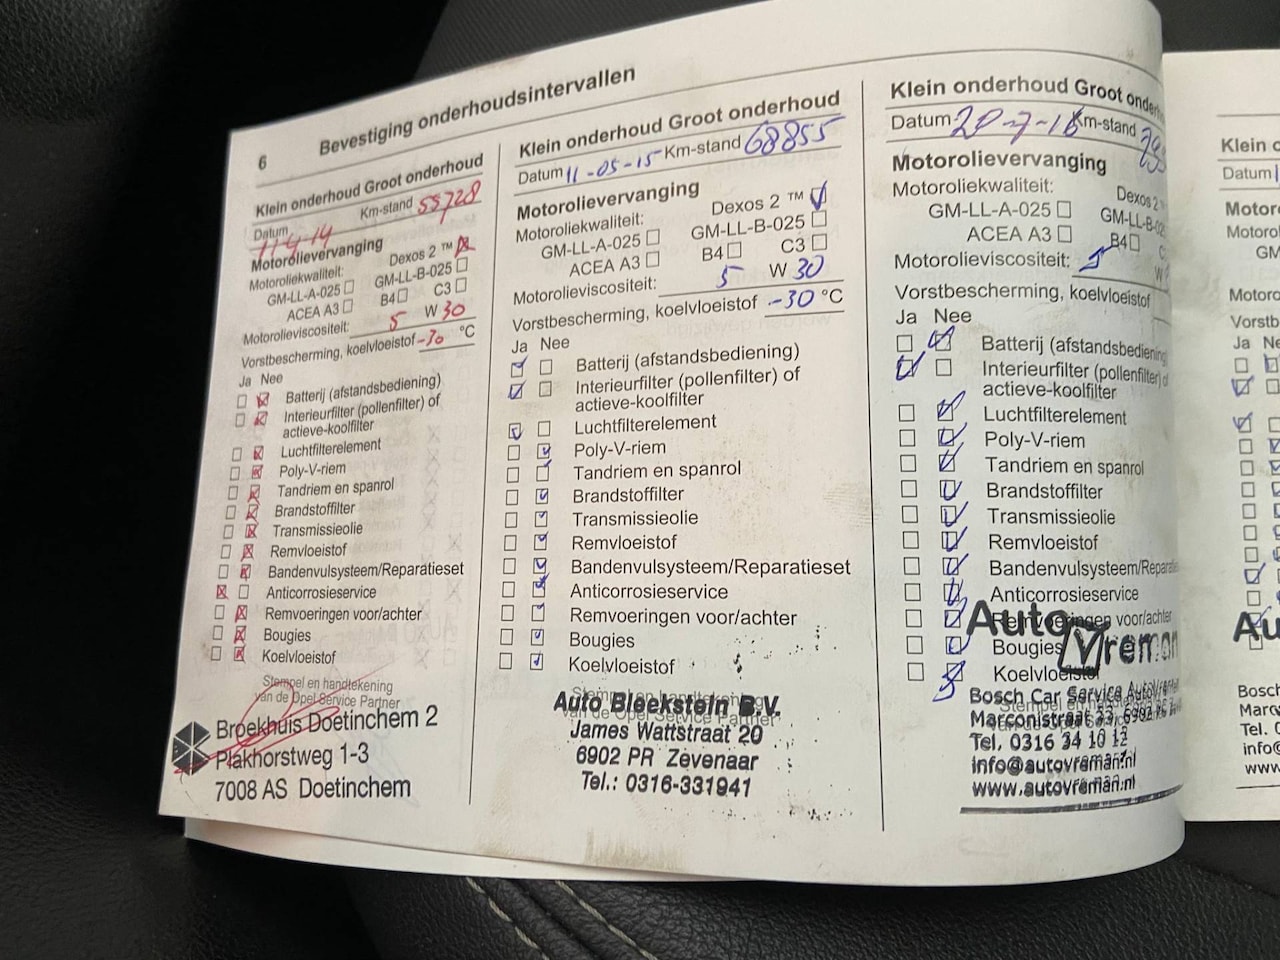 6 Bevestiging onderhoudsintervallen
Klein onderhoud Groot onderhoud
Datum 11-4-14 Km-stand 55728
Motorolievervanging
Motoroliekwaliteit: Dexos 2 ™
GM-LL-A-025 GM-LL-B-025
ACEA A3 B4 C3
Motorolieviscositeit: 5 W 30
Vorstbescherming, koelvloeistof -30 °C
Ja Nee
Batterij (afstandsbediening)
Interieurfilter (pollenfilter) of
actieve-koolfilter
Luchtfilterelement
Poly-V-riem
Tandriem en spanrol
Brandstoffilter
Transmissieolie
Remvloeistof
Bandenvulsysteem/Reparatieset
Anticorrosieservice
Remvoeringen voor/achter
Bougies
Koelvloeistof
Stempel en handtekening
van de Opel Service Partner
Broekhuis Doetinchem 2
Plakhorstweg 1-3
7008 AS Doetinchem
Klein onderhoud Groot onderhoud
Datum 11-05-15 Km-stand 68855
Motorolievervanging
Motoroliekwaliteit: Dexos 2 ™
GM-LL-A-025 GM-LL-B-025
ACEA A3 B4 C3
Motorolieviscositeit: 5 W 30
Vorstbescherming, koelvloeistof -30 °C
Ja Nee
Batterij (afstandsbediening)
Interieurfilter (pollenfilter) of
actieve-koolfilter
Luchtfilterelement
Poly-V-riem
Tandriem en spanrol
Brandstoffilter
Transmissieolie
Remvloeistof
Bandenvulsysteem/Reparatieset
Anticorrosieservice
Remvoeringen voor/achter
Bougies
Koelvloeistof
Stempel en handtekening
van de Opel Service Partner
Auto Bleekstein B.V.
James Wattstraat 20
6902 PR Zevenaar
Tel.: 0316-331941
Klein onderhoud Groot onderhoud
Datum Km-stand
Motorolievervanging
Motoroliekwaliteit: Dexos 2
GM-LL-A-025 GM-LL-B-025
ACEA A3 B4
Motorolieviscositeit: 5 W
Vorstbescherming, koelvloeistof
Ja Nee
Batterij (afstandsbediening)
Interieurfilter (pollenfilter) of
actieve-koolfilter
Luchtfilterelement
Poly-V-riem
Tandriem en spanrol
Brandstoffilter
Transmissieolie
Remvloeistof
Bandenvulsysteem/Reparatieset
Anticorrosieservice
Remvoeringen voor/achter
Bougies
Koelvloeistof
Auto Vreman
Bosch Car Service AutoVreman
Marconistraat 33, 6902
Tel. 0316 34 10 12
info@autovreman.nl
www.autovreman.nl
Klein
Datum
Motor
Ja
Au
Bosch
Marc
Tel. 0
info@
www.